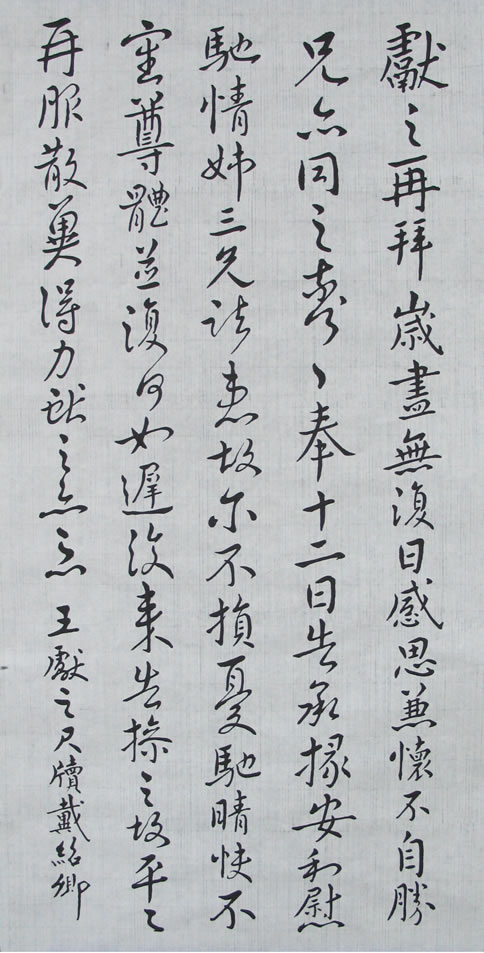 獻之再拜歲盡無復日感思兼懷不自勝
兄亦同之奈何〻奉十二日告承掾安和慰
馳情姊三兄諸患故尔不損憂馳晴快不
審尊體並復何如遲復来告操之故平〻
再服散冀得力獻之亦惡 王獻之尺牘戴紹卿